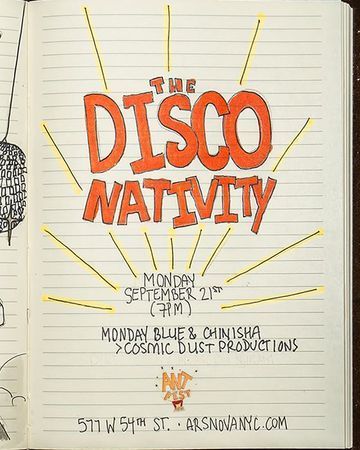 THE
DISCO
NATIVITY
MONDAY
SEPTEMBER 21ST
(7PM)
MONDAY BLUE & CHINISHA
> COSMIC DUST PRODUCTIONS
ANT
FEST
511 W 54TH ST. · ARSNOVANYC.COM